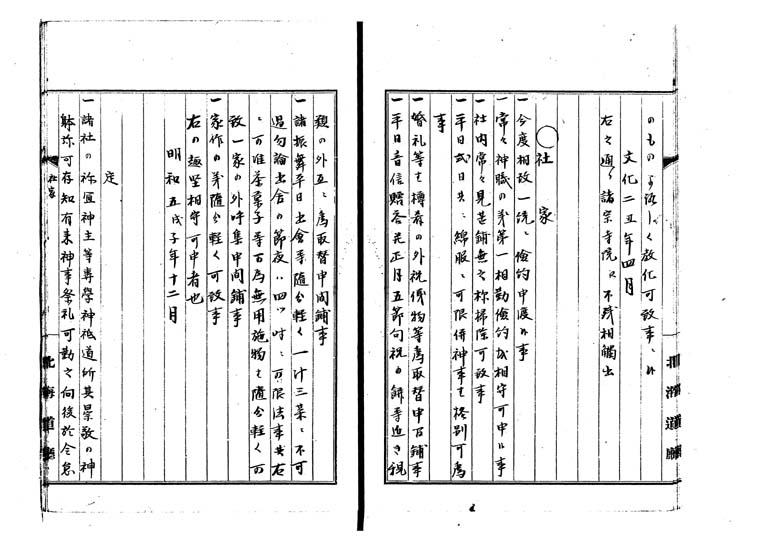 のものゟ流しく放化可致事ニ而
文化二丑年四月
右之通り諸宗寺院に不残相觸出
〇社家
一今度相改一統ニ倹約申渡ル事
一常々神職の第一相勤倹約成相守可申ル事
一社内常々見苦鋪無之称掃除可致事
一平日式日共ニ綿服ニ可限併神事者格別可為
事
一婚礼等者樽肴の外祝儀物等為取替申間鋪事
一平日音信贈答并正月五節句祝の餅等近き親
類の外互ニ為取替申間鋪事
一諸振舞平日出會等随分軽く一汁三菜ニ不可
過勿論出會の節夜ハ四ツ時ニ可限法事共右
ニ可准茶菓子等百為無用施物も随分軽く可
致一家の外呼集申間鋪事
一家作の義随分軽く可致事
右の趣堅相守可申者也
明和五戊子年十二月
定
一諸社の祢宜神主等専學神祇道所其景敬の神
躰弥可存知有来神事祭礼可勤之向後於令怠
社家
北海道廳
北海道廳